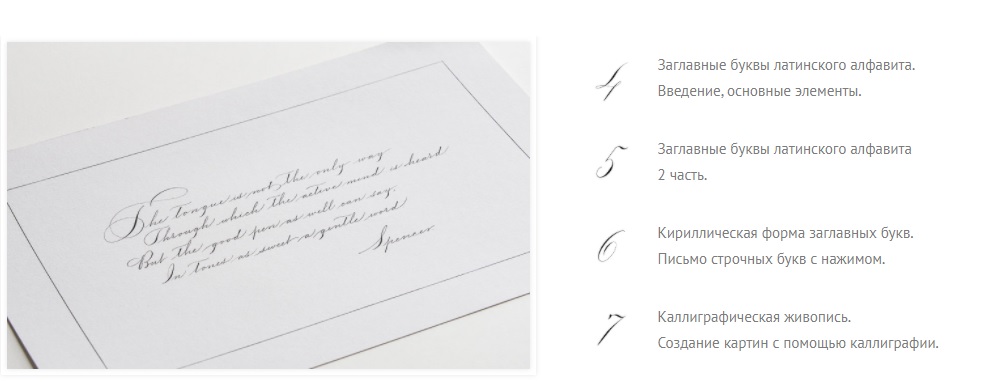 The tongue is not the only way
Through which the active mind is heard
But the good pen as well can say,
In tones as sweet a gentle word
Spencer
4
Заглавные буквы латинского алфавита.
Введение, основные элементы.
5
Заглавные буквы латинского алфавита
2 часть.
6
Кириллическая форма заглавных букв.
Письмо строчных букв с нажимом.
7
Каллиграфическая живопись.
Создание картин с помощью каллиграфии.